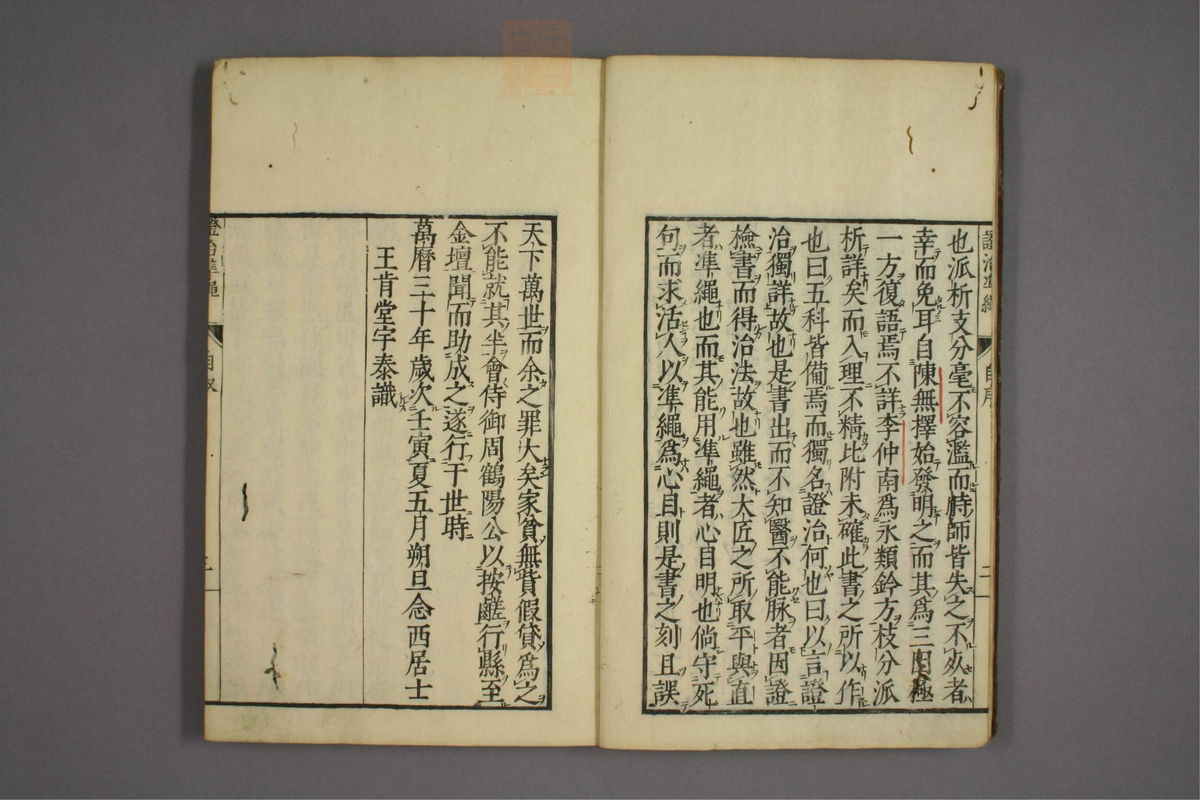 也派析支分毫不容濫而時師皆失之不死者
幸而免耳自陳無擇始發明之而其爲三因極
一方復語焉不詳李仲南爲永類鈐方枝分派
析詳矣而入理不精比附未確此書之所以作
也曰五科皆備焉而獨名證治何也曰以言證
治獨詳故也是書出而不知醫不能脉者因證
檢書而得治法故也雖然大匠之所取平與直
者準繩也而其能用準繩者心目明也倘守死
句而求活人以準繩爲心目則是書之刻且誤
天下萬世而余之罪大矣家貧無貲假貸爲之
不能就其半會侍御周鶴陽公以按鹺行縣至
金壇聞而助成之遂行于世時
萬曆三十年歲次壬寅夏五月朔旦念西居士
王肯堂宇泰識
證治準繩
自叙
三